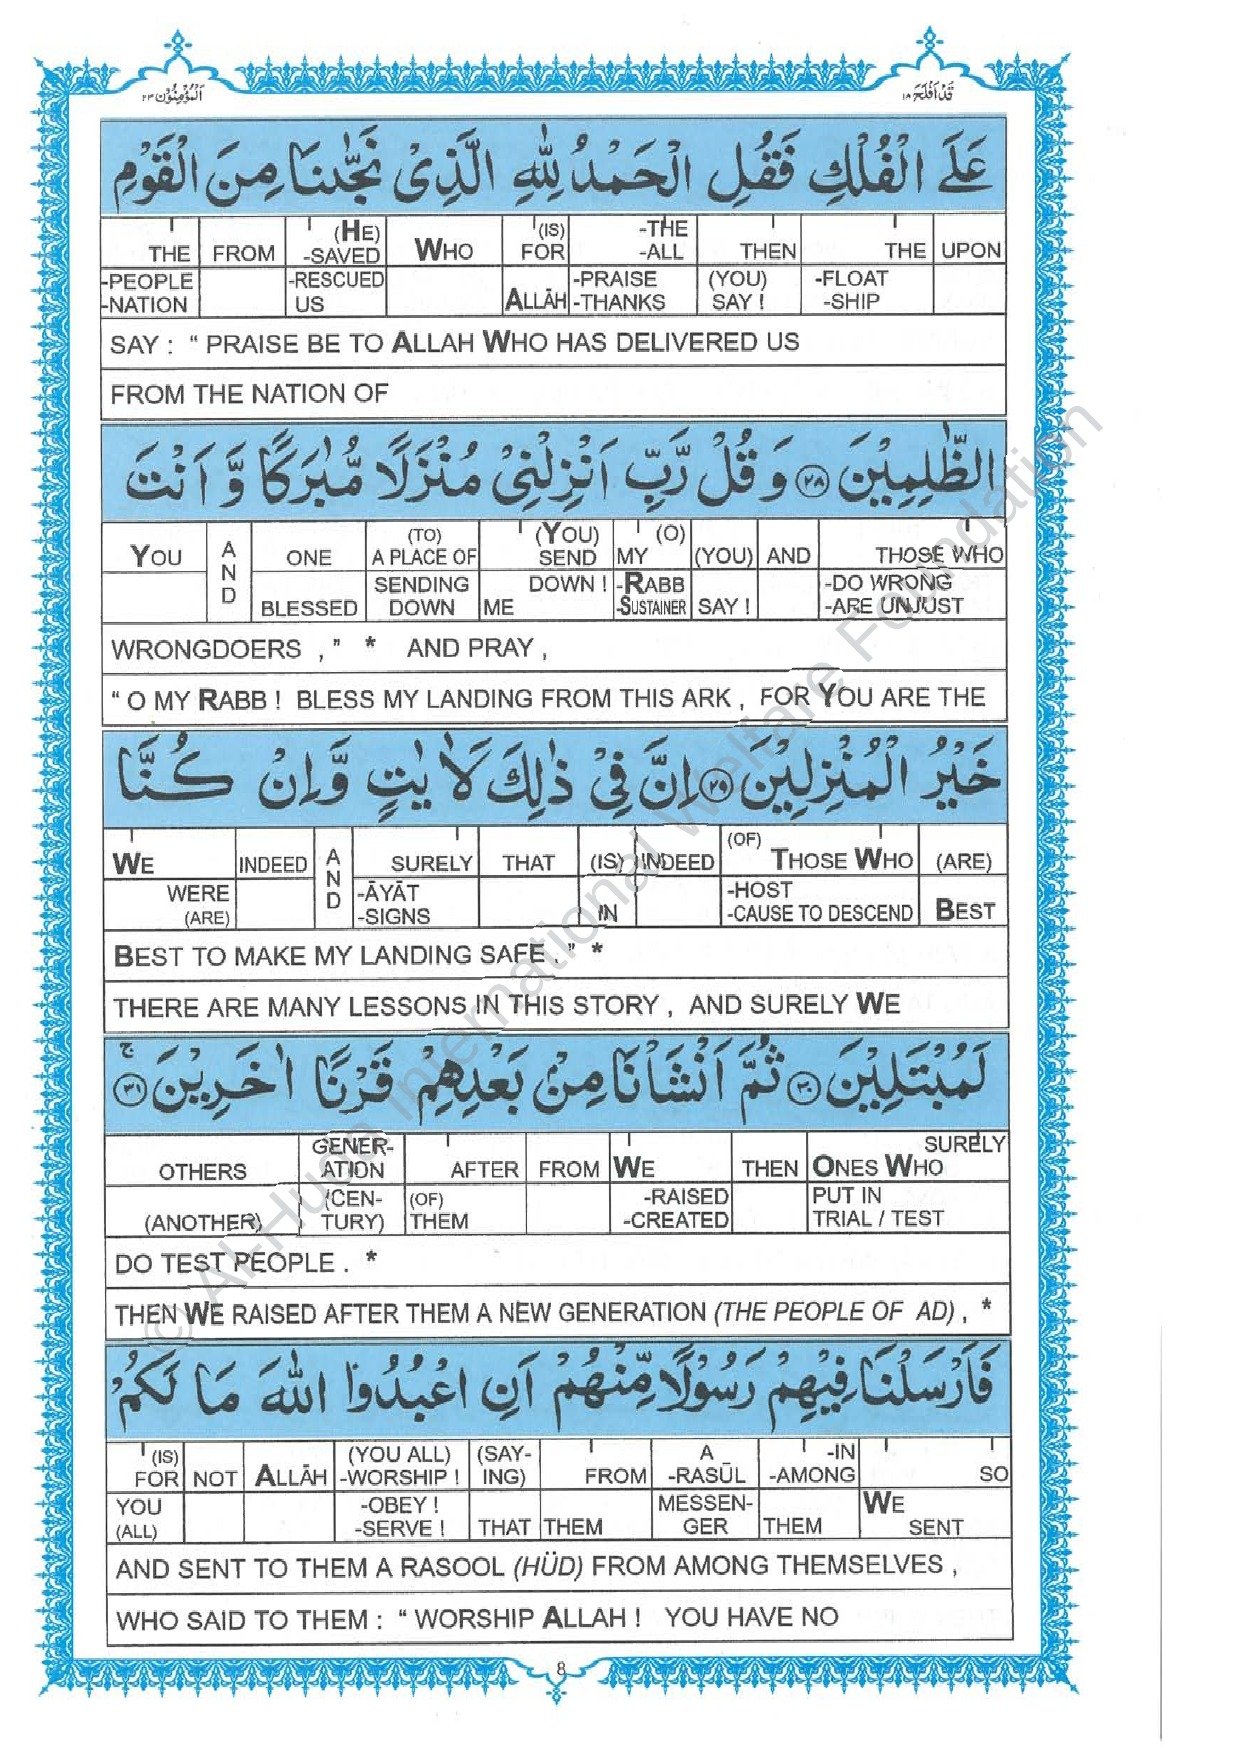 اَلْمُؤْمِنُوْن ٢٣
قَدْ اَفْلَحَ ١٨
عَلَى الْفُلْكِ فَقُلِ الْحَمْدُ لِلّٰهِ الَّذِىْ نَجّٰىنَا مِنَ الْقَوْمِ
THE FROM (HE) -SAVED WHO (IS) FOR -THE -ALL THEN THE UPON
-PEOPLE -NATION -RESCUED US ALLĀH -PRAISE -THANKS (YOU) SAY ! -FLOAT -SHIP
SAY : “ PRAISE BE TO ALLAH WHO HAS DELIVERED US
FROM THE NATION OF
الظّٰلِمِيْنَ ٢٨ وَ قُلْ رَّبِّ اَنْزِلْنِىْ مُنْزَلًا مُّبٰرَكًا وَّ اَنْتَ
YOU AND ONE (TO) A PLACE OF (YOU) SEND (O) MY (YOU) AND THOSE WHO
BLESSED SENDING DOWN DOWN ! ME -RABB -SUSTAINER SAY ! -DO WRONG -ARE UNJUST
WRONGDOERS , ” * AND PRAY ,
“ O MY RABB ! BLESS MY LANDING FROM THIS ARK , FOR YOU ARE THE
خَيْرُ الْمُنْزِلِيْنَ ٢٩ اِنَّ فِىْ ذٰلِكَ لَاٰيٰتٍ وَّاِنْ كُنَّا
WE INDEED AND SURELY THAT (IS) INDEED (OF) THOSE WHO (ARE)
WERE (ARE) -ĀYĀT -SIGNS IN -HOST -CAUSE TO DESCEND BEST
BEST TO MAKE MY LANDING SAFE . ” *
THERE ARE MANY LESSONS IN THIS STORY , AND SURELY WE
لَمُبْتَلِيْنَ ٣٠ ثُمَّ اَنْشَاْنَا مِنْ بَعْدِهِمْ قَرْنًا اٰخَرِيْنَ ٣١ ج
OTHERS GENER- ATION AFTER FROM WE THEN SURELY ONES WHO
(ANOTHER) (CEN- TURY) (OF) THEM -RAISED -CREATED PUT IN TRIAL / TEST
DO TEST PEOPLE . *
THEN WE RAISED AFTER THEM A NEW GENERATION (THE PEOPLE OF AD) , *
فَاَرْسَلْنَا فِيْهِمْ رَسُوْلًا مِّنْهُمْ اَنِ اعْبُدُوا اللّٰهَ مَا لَكُمْ
(IS) FOR NOT ALLĀH (YOU ALL) -WORSHIP ! (SAY- ING) FROM A -RASŪL -IN -AMONG SO
YOU (ALL) -OBEY ! -SERVE ! THAT THEM MESSEN- GER THEM WE SENT
AND SENT TO THEM A RASOOL (HÜD) FROM AMONG THEMSELVES ,
WHO SAID TO THEM : “ WORSHIP ALLAH ! YOU HAVE NO
8
© Al-Huda International Welfare Foundation